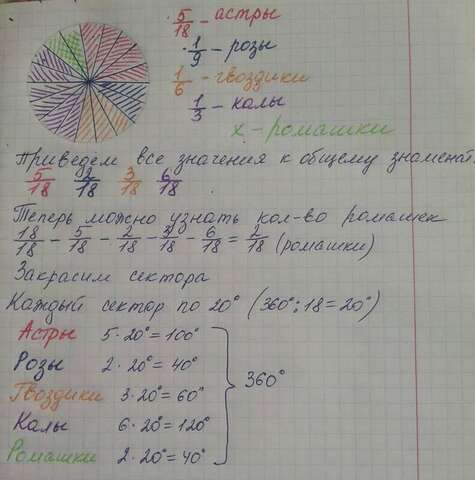 5/18 - астры
1/9 - розы
1/6 - гвоздики
1/3 - калы
х - ромашки
Приведем все значения к общему знаменат.
5/18 2/18 3/18 6/18
Теперь можно узнать кол-во ромашек
18/18 - 5/18 - 2/18 - 3/18 - 6/18 = 2/18 (ромашки)
Закрасим сектора
Каждый сектор по 20° (360°:18=20°)
Астры 5·20°=100°
Розы 2·20°=40°
Гвоздики 3·20°=60°
Калы 6·20°=120°
Ромашки 2·20°=40°
360°